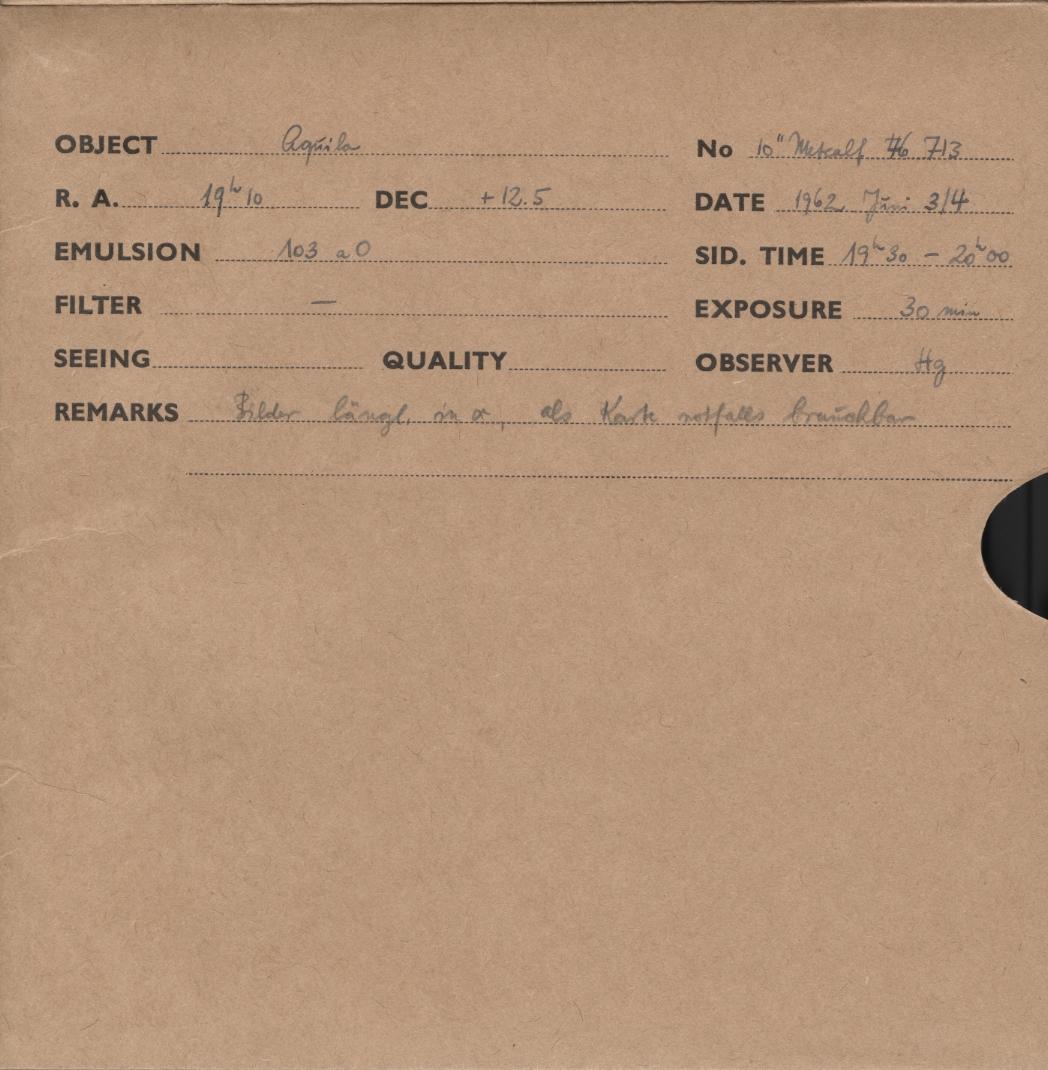 OBJECT Aquila No 10" Metcalf 713
R. A. 19h 10 DEC +12.5 DATE 1962 Juni 3/4
EMULSION 103 aO SID. TIME 19h30 – 20h00
FILTER — EXPOSURE 30 min
SEEING QUALITY OBSERVER Hg
REMARKS Bilder längl. in α, als Karte notfalls brauchbar